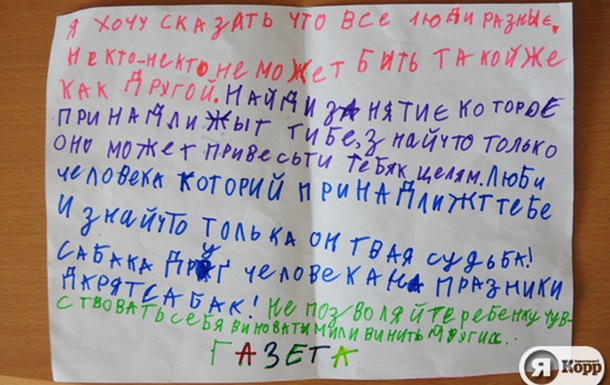 Я ХОЧУ СКАЗАТЬ ЧТО ВСЕ ЛЮДИ РАЗНЫЕ.
НЕКТО-НЕКТО НЕ МОЖЕТ БЫТЬ ТАКОЙ ЖЕ
КАК ДРЯГОЙ. НАЙДИ ЗАНЯТИЕ КОТОРОЕ
ПРИНАДЛИЖЫТ ТИБЕ, ЗНАЙ ЧТО ТОЛЬКО
ОНО МОЖЕТ ПРИВЕСЬТИ ТЕБЯ К ЦЕЛЯМ. ЛЮБИ
ЧЕЛОВЕКА КОТОРИЙ ПРИНАДЛИЖТ ТЕБЕ
И ЗНАЙ ЧТО ТОЛЬКА ОН ТВАЯ СУДЬБА!
САБАКА ДРУГ ЧЕЛОВЕКА НА ПРАЗНИКИ
ДАРЯТ САБАК! НЕ ПОЗВОЛЯЙТЕ РЕБЕНКУ ЧУВ-
СТВОВАТЬ СЕБЯ ВИНОВАТИМ ИЛИ ВИНИТЬ ДРЯГИХ..
ГАЗЕТА
Я Корр